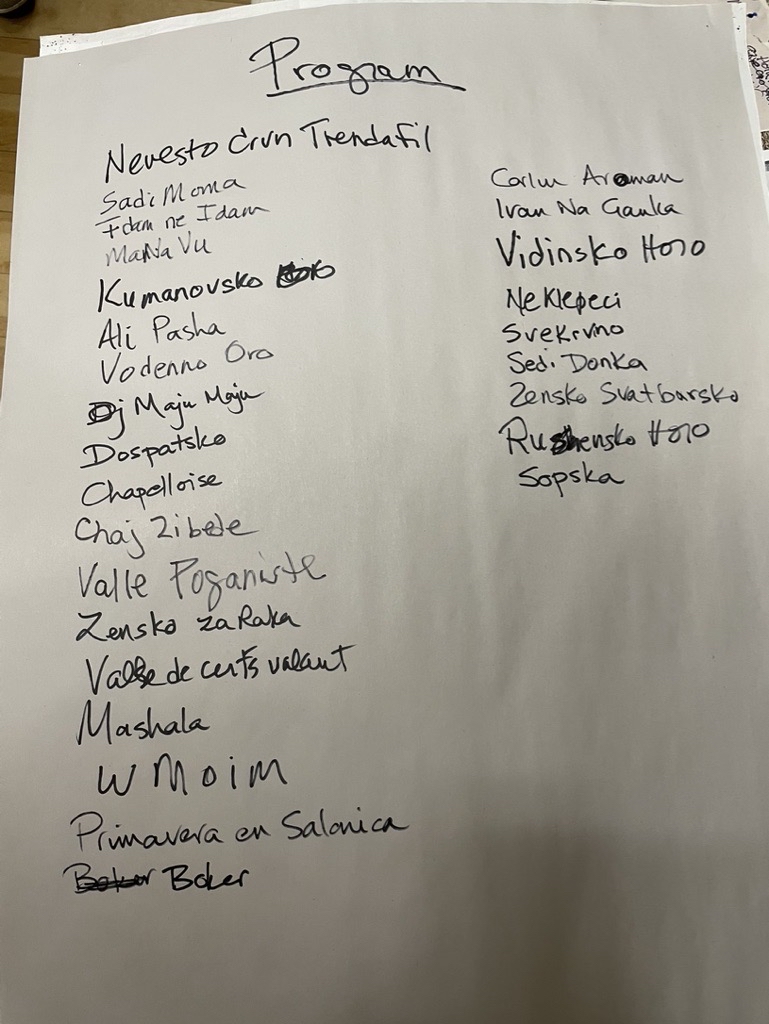 Program
Nevesto Crvn Trendafil
Sadi Moma
Idam ne Idam
MaNa Vu
Kumanovsko
Ali Pasha
Vodenno Oro
Oj Maju Maju
Dospatsko
Chapelloise
Chaj Zibede
Valle Poganiste
Zensko za Raka
Valse de certs valant
Mashala
W Moim
Primavera en Salonica
Boker
Carlun Aroman
Ivan Na Ganka
Vidinsko Horo
Ne Klepeci
Svekrvno
Sedi Donka
Zensko Svatbarsko
Rushensko Horo
Sopska